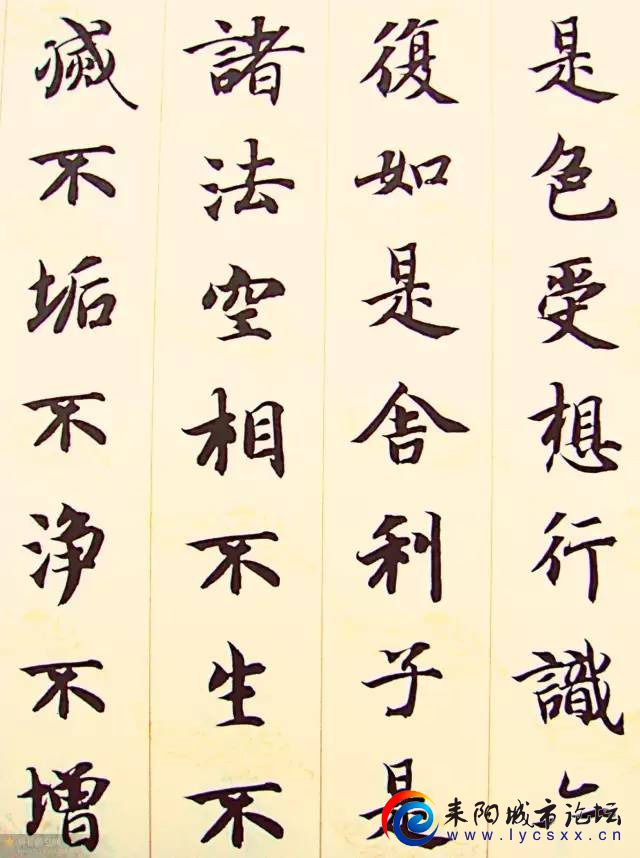 是色受想行識亦
復如是舎利子是
諸法空相不生不
滅不垢不浄不增
耒阳城市论坛
www.lycsxx.cn